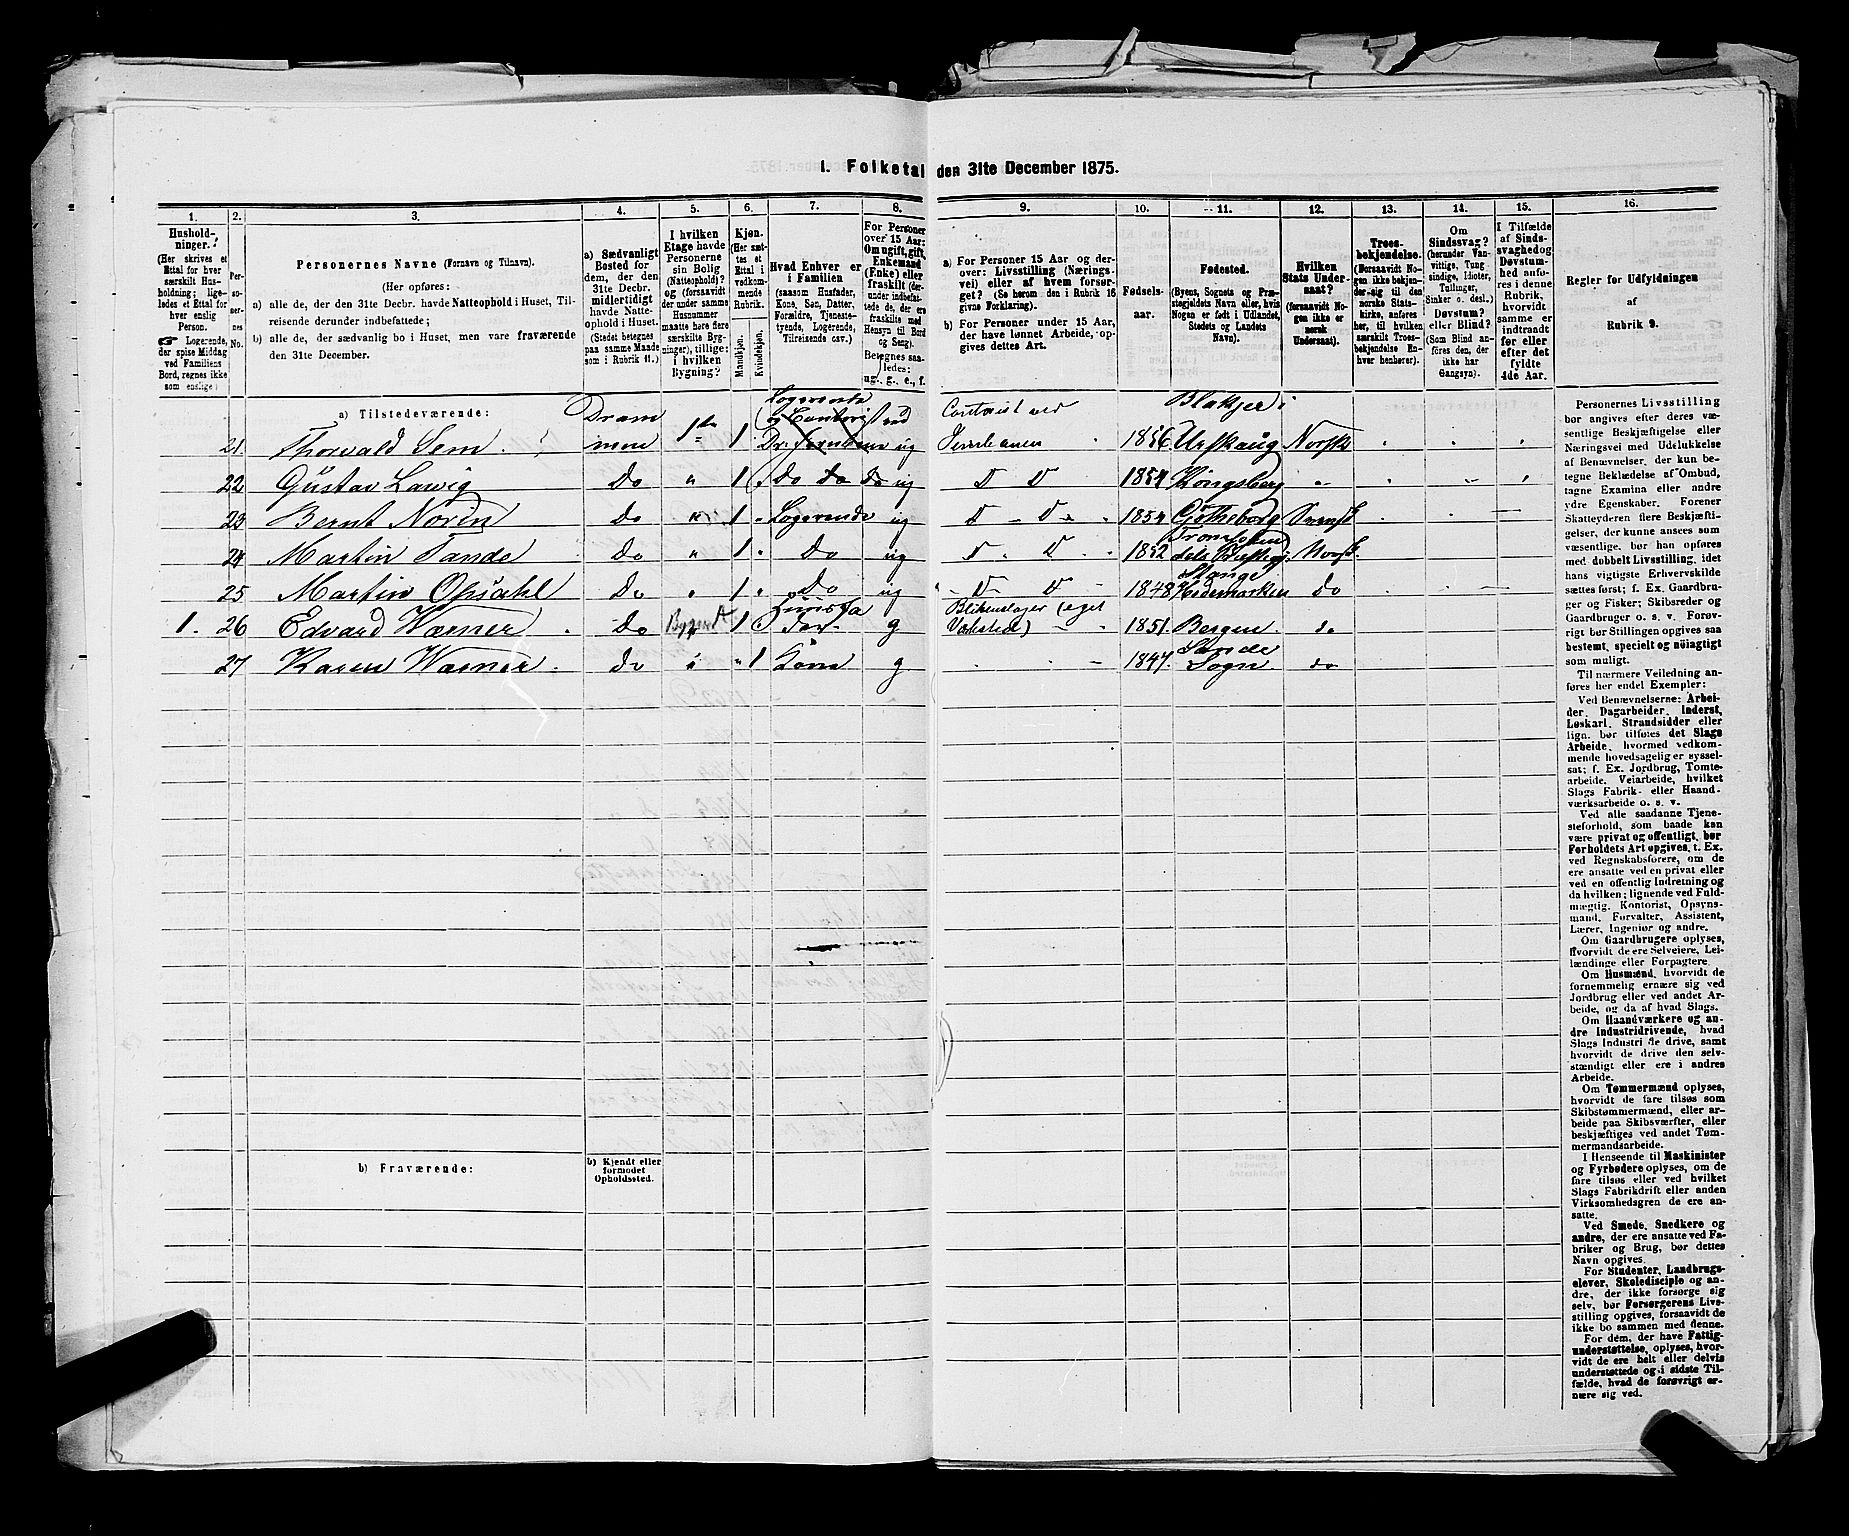 1. Folketal den 31te December 1875.
1. 2. 3. 4. 5. 6. 7. 8. 9. 10. 11. 12. 13. 14. 15. 16.
Hushold-
ninger.
(Her skrives et
Ettal for hver
særskilt Hus-
holdning; lige-
ledes et Ettal for
hver enslig
Person.
Logerende,
der spise Middag
ved Familiens
Bord, regnes ikke
som enslige.)
Per-
so-
ner-
nes
No.
Personernes Navne (Fornavn og Tilnavn).
(Her opføres:
a) alle de, der den 31te Decbr. havde Natteophold i Huset, Til-
reisende derunder indbefattede;
b) alle de, der sædvanlig bo i Huset, men vare fraværende
den 31te December.
a) Sædvanligt
Bosted for
dem, der den
31te Decbr.
midlertidigt
havde Natte-
ophold i Huset.
(Stedet betegnes
paa samme Maade
som i Rubrik 11.)
I hvilken
Etage havde
Personerne
sin Bolig
(Natteophold)?
og (forsaavidt
der under samme
Husnummer
maatte høre flere
særskilte Byg-
ninger), tillige:
i hvilken
Bygning?
Kjøn.
(Her sæt-
tes et
Ettal i
vedkom-
mende
Rubrik.
Mandkjøn.
Kvindekjøn.
Hvad Enhver er
i Familien
(saasom Husfader,
Kone, Søn, Datter,
Forældre, Tjeneste-
tyende, Logerende,
Tilreisende osv.)
For Personer
over 15 Aar:
Om ugift, gift,
Enkemand
(Enke) eller
fraskilt (der-
under indbefat-
tede de, der ere
fraskilte med
Hensyn til Bord
og Seng).
Betegnes saa-
ledes:
ug., g., e., f.
a) For Personer 15 Aar og der-
over: Livsstilling (Nærings-
vei) eller af hvem forsør-
get? (Se herom den i Rubrik 16
givne Forklaring).
b) For Personer under 15 Aar,
der have lønnet Arbeide, op-
gives dettes Art.
Fødsels-
aar.
Fødested.
(Byens, Sognets og Præ-
stegjeldets Navn eller, hvis
Nogen er født i Udlandet,
Stedets og Landets
Navn).
Hvilken
Stats Under-
saat?
(forsaavidt No-
gen ikke er
norsk
Undersaat).
Troes-
bekjendelse.
(Forsaavidt No-
gen ikke bekjen-
der sig til den
norske Stats-
kirke, anføres
her, til hvilken
særskilt Troes-
bekjendelse En-
hver henhører).
Om
Sindssvag?
(herunder Van-
vittige, Tung
sindige, Idioter,
Tullinger,
Sinker o. desl.)
Døvstum?
eller Blind?
(Som Blind an-
føres den, der
ikke har
Gangsyn).
I Tilfælde
af Sinds-
svaghed og
Døvstum-
hed anfø-
res i denne
Rubrik,
hvorvidt
samme er
indtraadt
før eller
efter det
fyldte
4de Aar.
Regler for Udfyldningen
af
Rubrik 9.
a) Tilstedeværende:
21. Thorvald Sem Dram mmen 1ste 1 Logerende og Contorist ved Dr. Jernbane ug Contorist ved Jernbanen 1856 Blakjer i Urskaug Norsk
22 Gustav Lawig Do " 1 do do do ug D D 1854 Kongsberg
23 Bernt Norin Do 1 Logerende ug D D 1854 Gøtheborg Svensk
24 Martin Tande Do " 1 Do ug D D 1852 Norsk
25 Martin Opsahl Do " 1 Do ug D D 1848 Stange Hedemarken do
1. 26 Edvard Warner Do 1 Husfa Far g Blikenslager (eget Værksted) 1851 Bergen do
27 Karen Warner Do " 1 Kone g 1847 Sande Sogn do
b) Fraværende:
b) Kjendt eller
formodet
Opholdssted.
Personernes Livsstilling
bør angives efter deres væ-
sentlige Beskjæftigelse eller
Næringsvei med Udelukkelse
af Benævnelser, der kun be-
tegne Beklædelse af Ombud,
tagne Examina eller andre
ydre Egenskaber. Forener
Skatteyderen flere Beskjæfti-
gelser, der kunne ansees som
væsentlige, bør han opføres
med dobbelt Livsstilling, idet
hans vigtigste Erhvervskilde
sættes først; f. Ex. Gaardbru-
ger og Fisker; Skibsreder og
Gaardbruger o. s. v. Forøv-
rigt bør Stillingen opgives saa
bestemt, specielt og nøiagtigt
som muligt.
Til nærmere Veiledning an-
føres her endel Exempler:
Ved Benævnelserne: Arbei-
der, Dagarbeider, Inderst,
Løskarl, Strandsidder eller
lign. bør tilføies det Slags
Arbeide, hvormed vedkom-
mende hovedsagelig er syssel-
sat; f. Ex. Jordbrug, Tomte-
arbeide, Veiarbeide, hvilket
Slags Fabrik- eller Haand-
værksarbeide o. s. v.
Ved alle saadanne Tjene-
steforhold, som baade kan
være privat og offentligt, bør
Forholdets Art opgives, t. Ex.
ved Regnskabsførere, om de
ere ansatte ved en privat eller
ved en offentlig Indretning og
da hvilken; lignende ved Fuld-
mægtig, Kontorist, Opsyns-
mand, Forvalter, Assistent,
Lærer, Ingeniør og andre.
Om Gaardbrugere oplyses,
hvorvidt de ere Selveiere, Lei-
lændinge eller Forpagtere.
Om Husmænd, hvorvidt de
fornemmelig ernære sig ved
Jordbrug eller ved andet Ar-
beide, og da af hvad Slags.
Om Haandværkere og an-
dre Industridrivende, hvad
Slags Industri de drive, samt
hvorvidt de drive den selv-
stændigt eller ere i andres
Arbeide.
Om Tømmermænd oplyses,
hvorvidt de fare tilsøs som
Skibstømmermænd, eller ar-
beide paa Skibsværfter, eller
beskjæftiges ved andet Tøm-
mermandsarbeide.
I Henseende til Maskinister
og Fyrbødere oplyses, om de
fare tilsøs eller ved hvilket
Slags Fabrikdrift eller anden
Virksomhedsgren de ere an-
satte.
Ved Smede, Snedkere og
andre, der ere ansatte ved Fa-
briker og Brug, bør dettes
Navn opgives.
For Studenter, Landbrugs-
elever, Skoledisciple og an-
dre, der ikke forsørge sig
selv, bør Forsørgerens Livs-
stilling opgives, forsaavidt de
ikke bo sammen med denne.
For dem, der have Fattig-
understøttelse, oplyses, hvor-
vidt de ere helt eller delvis
understøttede og i sidste Til-
fælde, hvad de forøvrigt er-
nære sig ved.